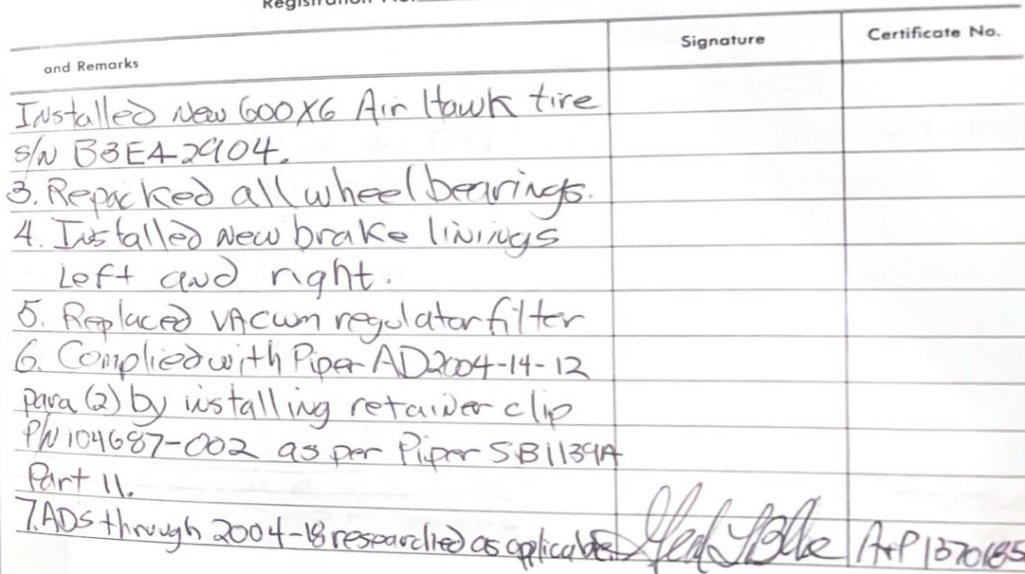 Registration No.
and Remarks
Signature
Certificate No.
Installed new 600X6 Air Hawk tire
S/N B3EA2904.
3. Repacked all wheel bearings.
4. Installed new brake linings
Left and right.
5. Replaced VACUum regulator filter
6. Complied with Piper AD2004-14-12
para (2) by installing retainer clip
P/N 104687-002 as per Piper SB1139A
Part 11.
7. ADs through 2004-18 researched as applicable. A+P 1370185